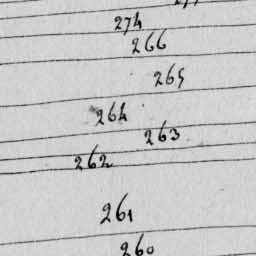 274
266
265
264
263
262
261
260